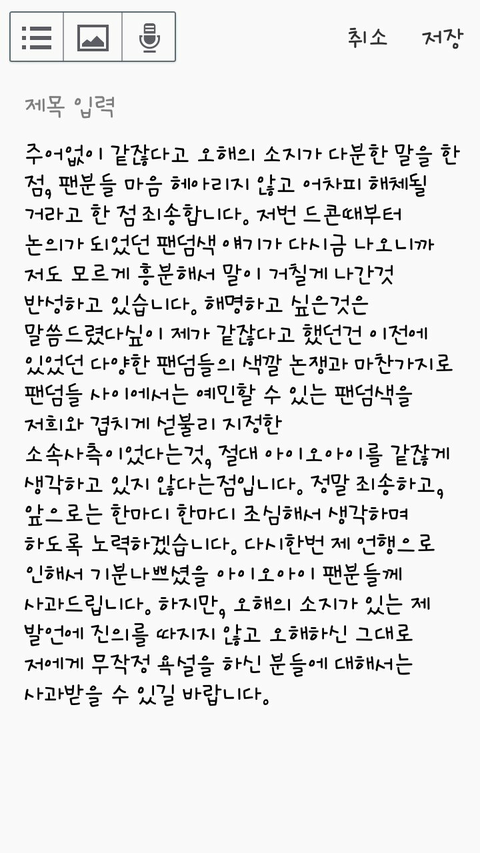 취소 저장
제목 입력
주어없이 같잖다고 오해의 소지가 다분한 말을 한
점, 팬분들 마음 헤아리지 않고 어차피 해체될
거라고 한 점 죄송합니다. 저번 드콘때부터
논의가 되었던 팬덤색 얘기가 다시금 나오니까
저도 모르게 흥분해서 말이 거칠게 나간것
반성하고 있습니다. 해명하고 싶은것은
말씀드렸다싶이 제가 같잖다고 했던건 이전에
있었던 다양한 팬덤들의 색깔 논쟁과 마찬가지로
팬덤들 사이에서는 예민할 수 있는 팬덤색을
저희와 겹치게 섣불리 지정한
소속사측이었다는것, 절대 아이오아이를 같잖게
생각하고 있지 않다는점입니다. 정말 죄송하고,
앞으로는 한마디 한마디 조심해서 생각하며
하도록 노력하겠습니다. 다시한번 제 언행으로
인해서 기분나쁘셨을 아이오아이 팬분들께
사과드립니다. 하지만, 오해의 소지가 있는 제
발언에 진의를 따지지 않고 오해하신 그대로
저에게 무작정 욕설을 하신 분들에 대해서는
사과받을 수 있길 바랍니다.